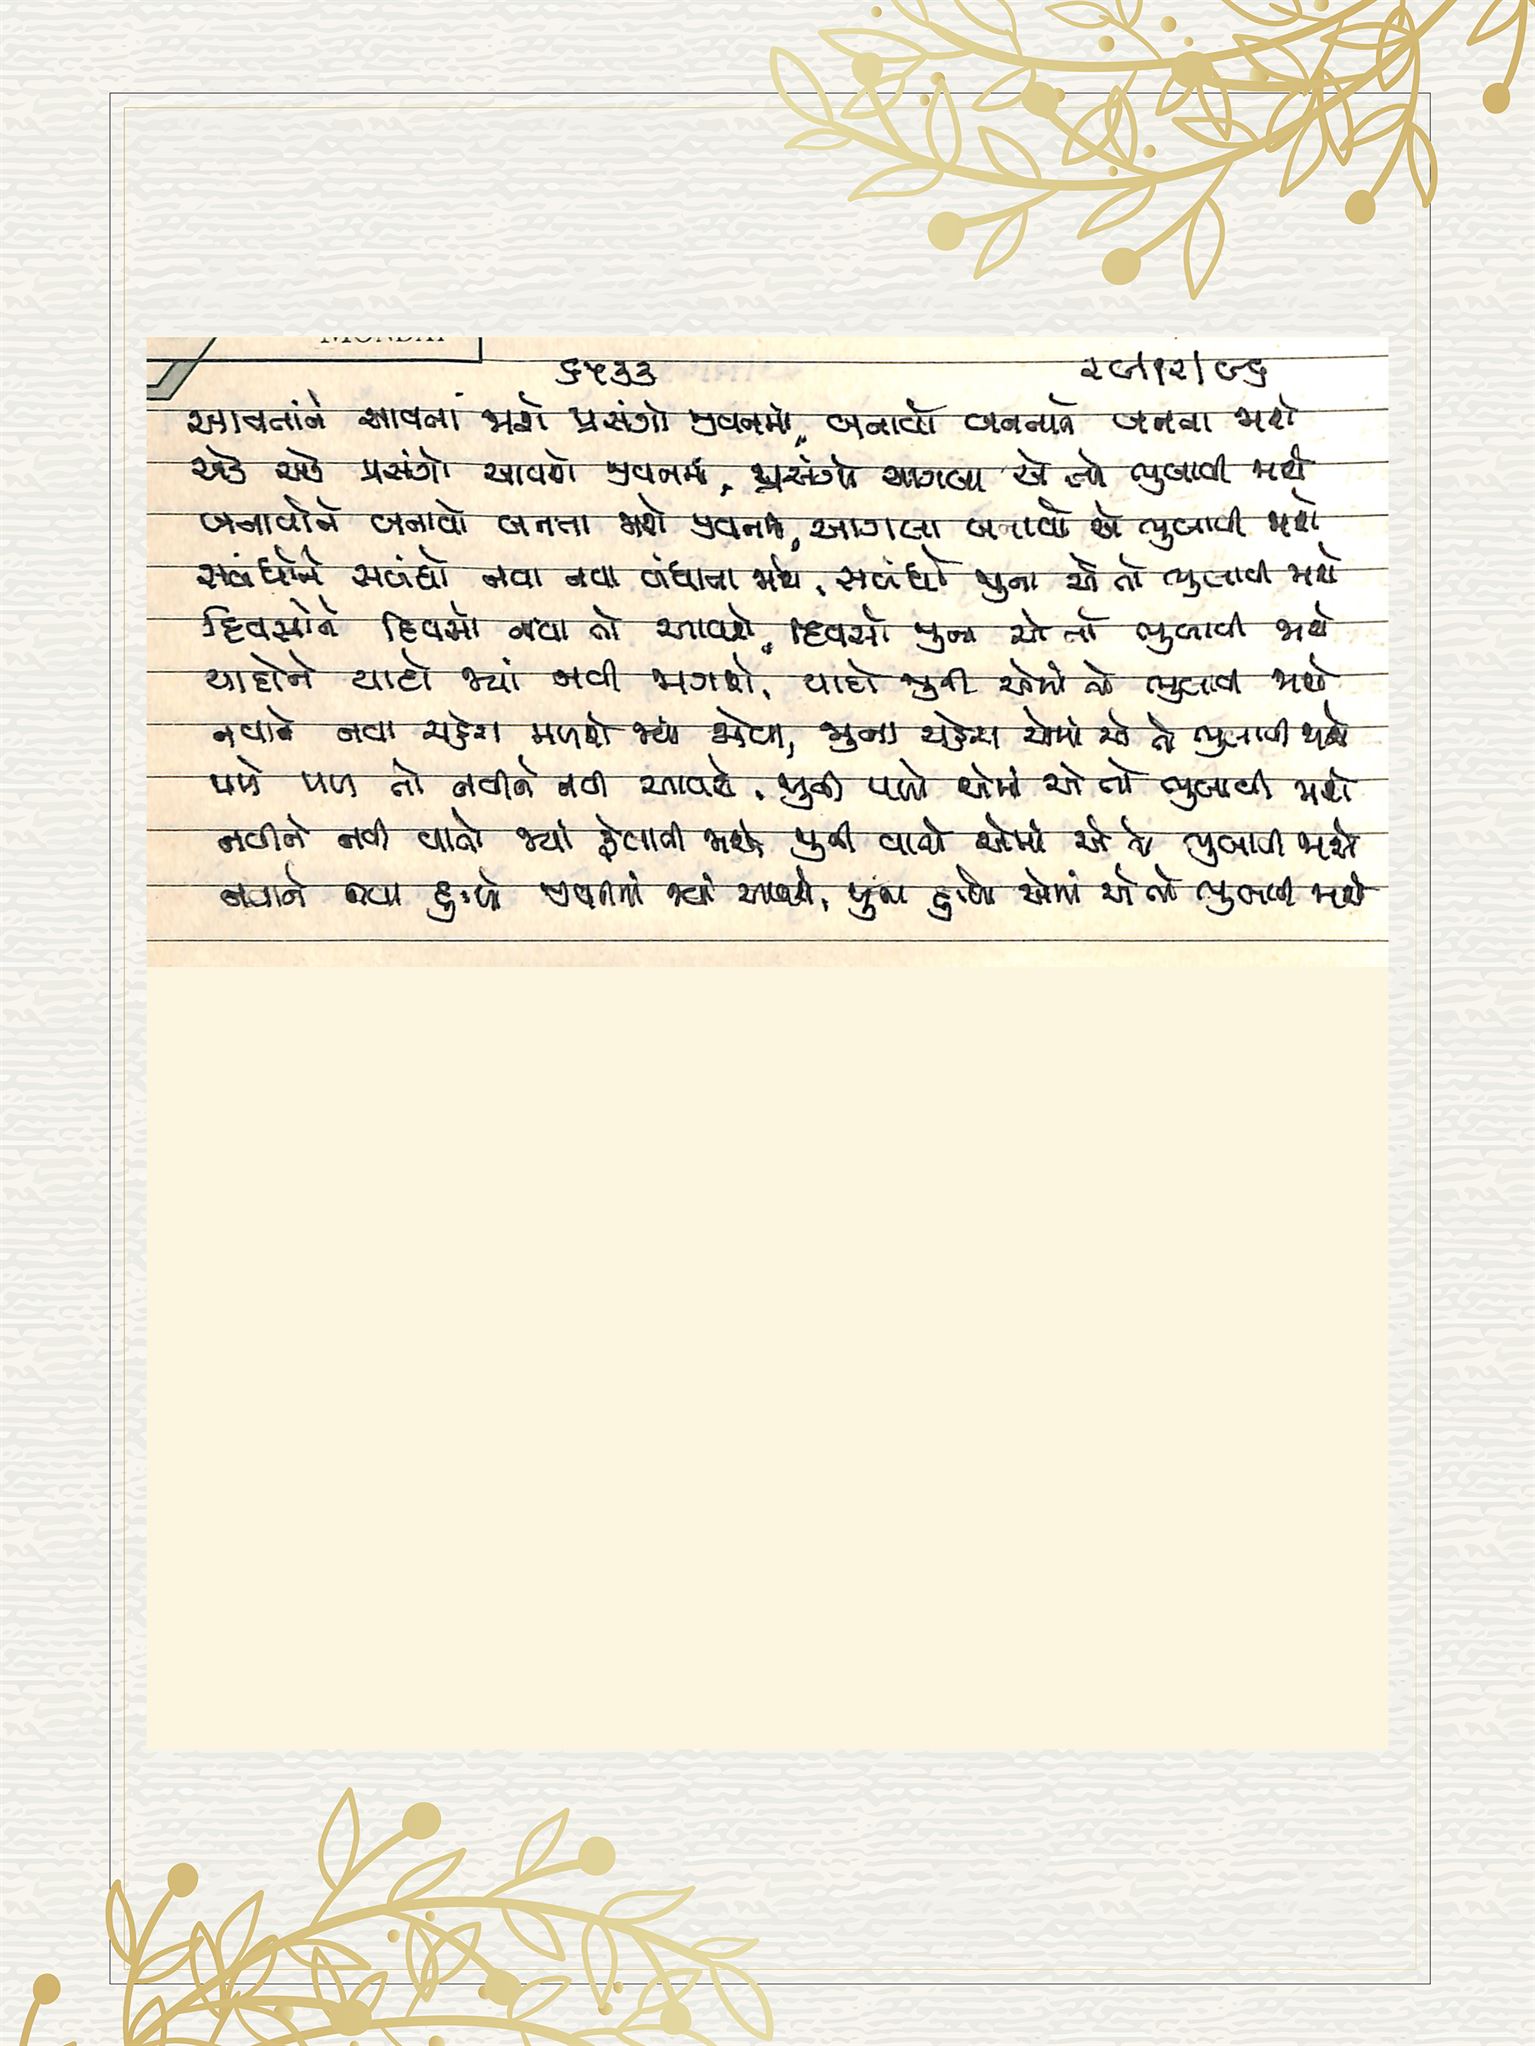 MONDAY
૬૫૩૩ ૨૯/૧૨/૯૬
આવતાંને આવતાં જાશે પ્રસંગો જીવનમાં, બનાવો બનનારે બનતા જાશે
એક એક પ્રસંગો આવશે જીવનમાં, પ્રસંગો આગલા એ તો ભુલાવી જાશે
બનાવોને બનાવો બનતા જાશે જીવનમાં, આગલા બનાવો એ ભુલાવી જાશે
સબંધોને સબંધો નવા નવા બંધાતા જાશે, સબંધો જુના એ તો ભુલાવી જાશે
દિવસોને દિવસો નવા તો આવશે, દિવસો જુના એ તો ભુલાવી જાશે
યાદોને યાદો જ્યાં નવી જાગશે, યાદો જુની એમાં તો ભુલાવી જાશે
નવાને નવા ચહેરા મળશે જ્યાં જોવા, જુના ચહેરા એમાં એ તો ભુલાવી જાશે
પળે પળ તો નવીને નવી આવશે, જુની પળો એમાં એ તો ભુલાવી જાશે
નવીને નવી વાતો જ્યાં ફેલાતી જાશે જુની વાતો એમાં એ તો ભુલાવી જાશે
નવાને નવા દુઃખો જીવનમાં જ્યાં આવશે, જુના દુઃખો એમાં એ તો ભુલાવી જાશે